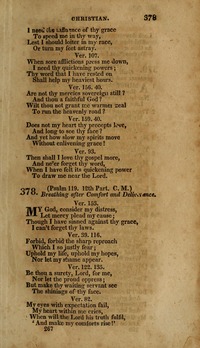 CHRISTIAN. 378
I need the influence of thy grace
To speed me in thy way,
Lest I should loiter in my race,
Or turn my feet astray.
Ver. 107.
When sore afflictions press me down,
I need thy quickening powers;
Thy word that I have rested on
Shall help my heaviest hours.
Ver. 156, 40.
Are not thy mercies sovereign still?
And thou a faithful God?
Wilt thou not grant me warmer zeal
To run the heavenly road?
Ver. 159, 40.
Does not my heart thy precepts love,
And long to see thy face?
And yet how slow my spirits move
Without enlivening grace!
Ver. 93.
Then shall I love thy gospel more,
And ne'er forget thy word,
When I have felt its quickening power
To draw me near the Lord.
378. (Psalm 119. 12th Part. C. M.)
Breathing after Comfort and Deliverance.
Ver. 153.
MY God, consider my distress,
Let mercy plead my cause;
Though I have sinned against thy grace,
I can't forget thy laws.
Ver. 39, 116.
Forbid, forbid the sharp reproach
Which I so justly fear;
Uphold my life, uphold my hopes,
Nor let my shame appear.
Ver. 122, 135.
Be thou a surety, Lord, for me,
Nor let the proud oppress;
But make thy waiting servant see
The shinings of thy face.
Ver. 82.
My eyes with expectation fail,
My heart within me cries,
'When will the Lord his truth fulfil,
'And make my comforts rise?'
267